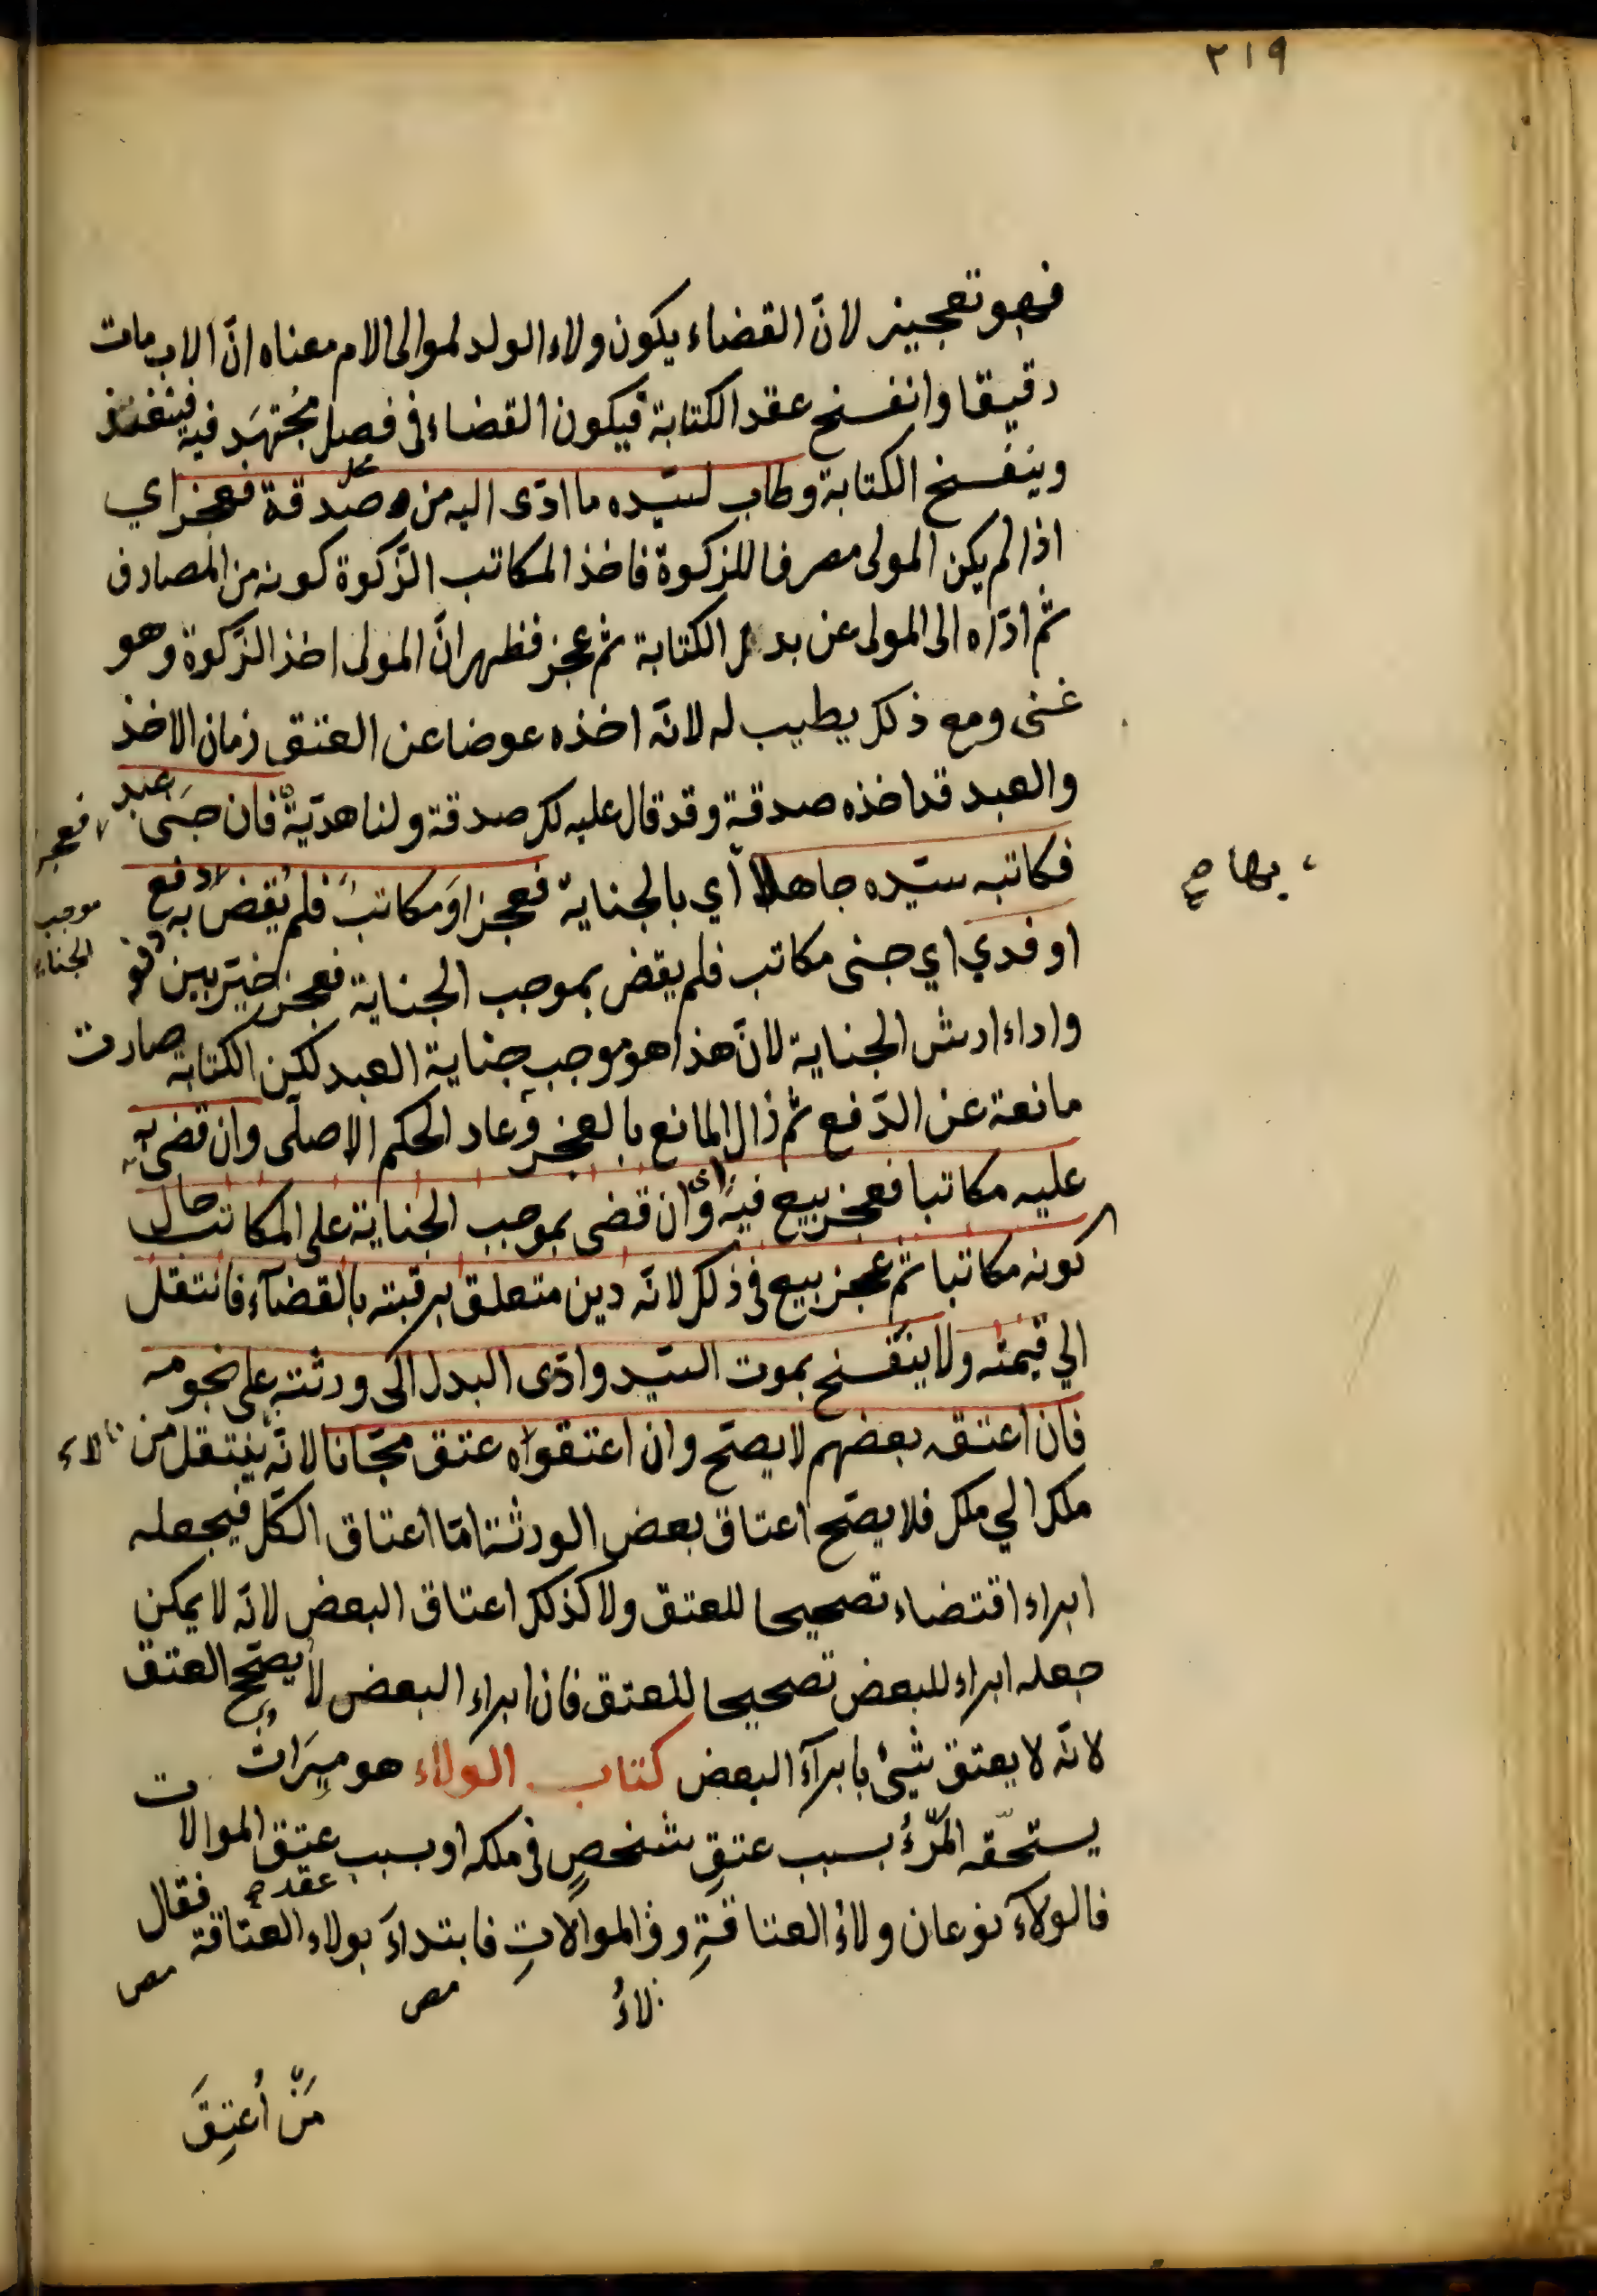 ٢١٩
فهو تعجيز لانّ القضاء يكون ولاء الولد لموالى الام معناه انّ الاب مات
رقيقا وانفسخ عقد الكتابة فيكون القضاء فى فصل مُجتهَد فيه فينفذ
وينفسخ الكتابة وطاب لسيّده ما ادّى اليه من صدقة فعجز اي
اذا لم يكن المولى مصرفا للزكوة فاخذ المكاتب الزّكوة كونه من المصارف
ثم ادّاه الى المولى عن بدل الكتابة ثم عجز فظهر انّ المولى اخذ الزّكوة وهو
غنى ومع ذلك يطيب له لانّه اخذه عوضا عن العتق زمان الاخذ
والعبد قد اخذه صدقة وقد قال عليه لك صدقة ولنا هديّة فان جنى عبد
فكاتبه سيّده جاهلا أي بالجناية فعجز او مكاتب فلم يُقض به فعجز دفع
او فدي اي جنى مكاتب فلم يقض بموجب الجناية فعجز خيّر بين دفعه
موجب الجناية
بها صح
واداء ارش الجناية لانّ هذا هو موجب جناية العبد لكن الكتابة صارت
مانعة عن الدّفع ثم زال المانع بالعجز وعاد الحكم الاصلى وان قضى به
عليه مكاتبا فعجز بيع فيه اى وان قضى بموجب الجناية على المكاتب حال
كونه مكاتبا ثم عجز بيع فى ذلك لانّه دين متعلق برقبته بالقضآء فانتقل
الي قيمته ولا ينفسخ بموت السيّد وادّى البدل الى ورثته على نجومه
فان اعتقه بعضهم لا يصحّ وان اعتقواه عتق مجّانا لانّه لا ينتقل من
ملك الي ملك فلا يصّح اعتاق بعض الورثة امّا اعتاق الكلّ فيجعله
ابراء اقتضاء تصحيحا للعتق ولا كذلك اعتاق البعض لانّه لا يمكن
جعله ابراء للبعض تصحيحا للعتق فان ابراء البعض لا يصّح العتق
لانّه لا يعتق شيئ بابرآء البعض كتاب الولاء هو ميرَاث
يستحّقه المرْءُ بسبب عتقِ شخصٍ فى ملكه او بسبب عقد الموالات
فالولآء نوعان ولاءُ العتاقةِ وولاءُ الموالاتِ فابتداءَ بولاء العتاقة فقال
مَنْ أُعتِقَ